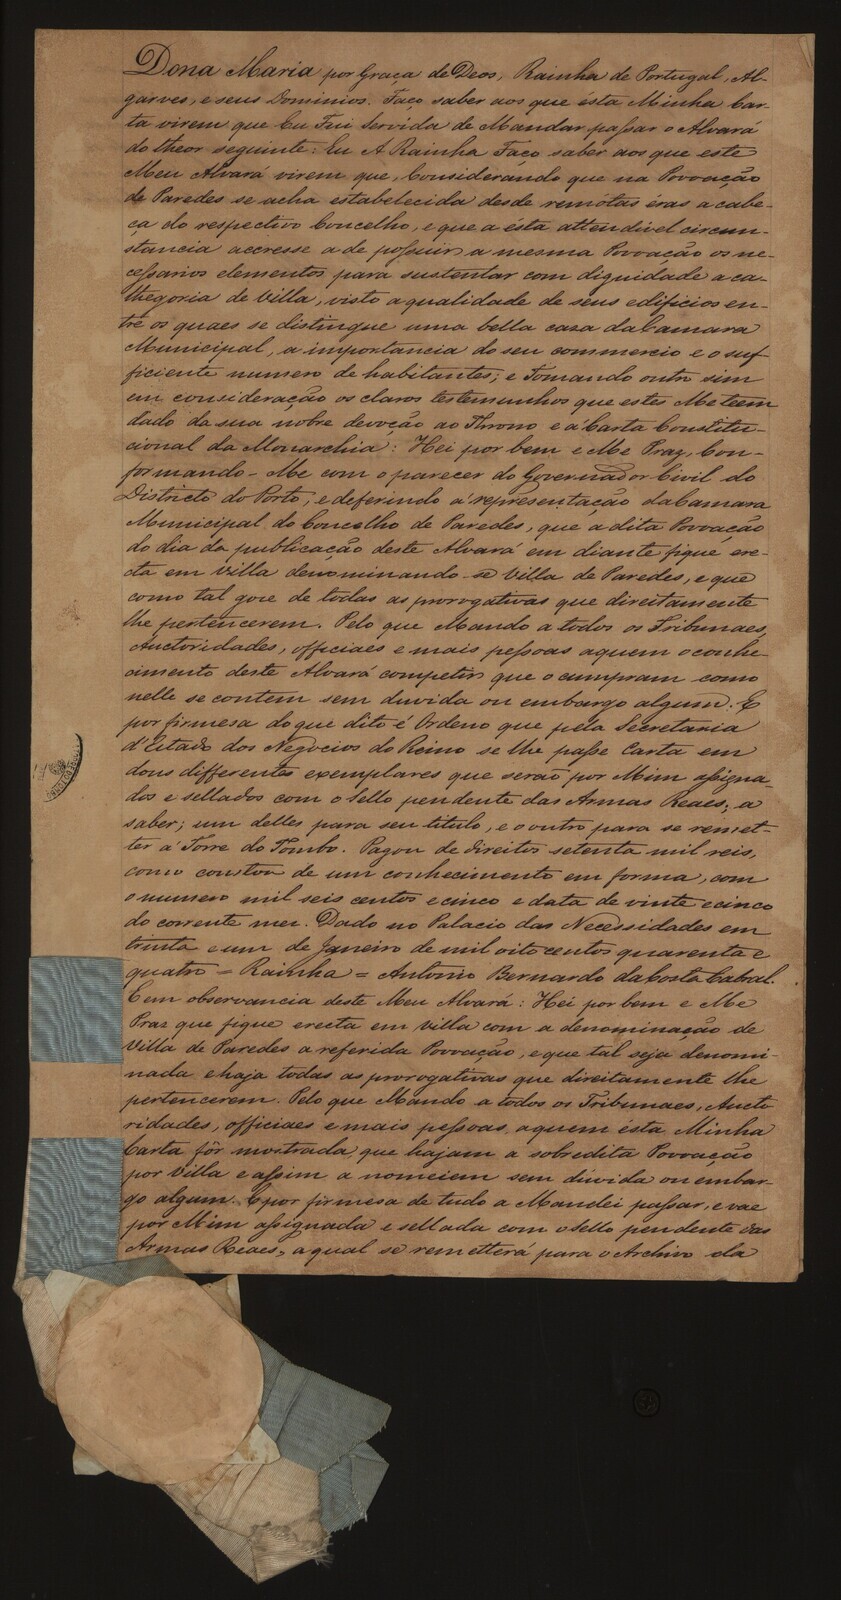 Dona Maria por Graça de Deos, Rainha de Portugal, Al-
garves, e seus Dominios. Faço saber aos que ésta Minha Car-
ta virem que Eu Fui Servida de Mandar passar o Alvará
do theor seguinte: Eu A Rainha Faço saber aos que este
Meu Alvará virem que, Considerando que na Povoação
de Paredes se acha estabelecida desde remótas eras a cabe-
ça do respectivo Concelho, e que a ésta attendivel circum-
stancia accresse a de possuir a mesma Povoação os ne-
cessarios elementos para sustentar com dignidade a ca-
thegoria de Villa, visto a qualidade de seus edificios en-
tre os quaes se distingue uma bella casa da Camara
Municipal, a importancia do seu commercio e o suf-
ficiente numero de habitantes; e Tomando outro sim
em consideração os claros testemunhos que estes Me teem
dado da sua nobre devoção ao Throno e á Carta Constitu-
cional da Monarchia: Hei por bem e Me Praz, Con-
formando-Me com o parecer do Governador Civil do
Districto do Porto, e deferindo á representação da Camara
Municipal do Concelho de Paredes, que a dita Povoação
do dia da publicação deste Alvará em diante fique ere-
cta em Villa denominando-se Villa de Paredes, e que
como tal gose de todas as prorogativas que direitamente
lhe pertencerem. Pelo que Mando a todos os Tribunaes,
Auctoridades, officiaes e mais pessoas a quem o conhe-
cimento deste Alvará competir que o cumpram como
nelle se contem sem duvida ou embargo algum. E
por firmesa do que dito é Ordeno que pela Secretaria
d'Estado dos Negocios do Reino se lhe passe Carta em
dous differentes exemplares que serão por Mim assigna-
dos e sellados com o Sello pendente das Armas Reaes, a
saber; um delles para seu titulo, e o outro para se remet-
ter á Torre do Tombo. Pagou de direitos setenta mil reis,
como constou de um conhecimento em forma, com
o numero mil seis centos e cinco e data de vinte e cinco
do corrente mez. Dado no Palacio das Necessidades em
trinta e um de Janeiro de mil oito centos quarenta e
quatro = Rainha = Antonio Bernardo da Costa Cabral.
E em observancia deste Meu Alvará: Hei por bem e Me
Praz que fique erecta em Villa com a denominação de
Villa de Paredes a referida Povoação, e que tal seja denomi-
nada e haja todas as prorogativas que direitamente lhe
pertencerem. Pelo que Mando a todos os Tribunaes, Aucto
ridades, officiaes e mais pessoas, a quem ésta Minha
Carta fôr mostrada, que hajam a sobredita Povoação
por Villa e assim a nomeiem sem dúvida ou embar-
go algum. E por firmesa de tudo a Mandei passar, e vae
por Mim assignada e sellada com o Sello pendente das
Armas Reaes, a qual se remetterá para o Archivo da